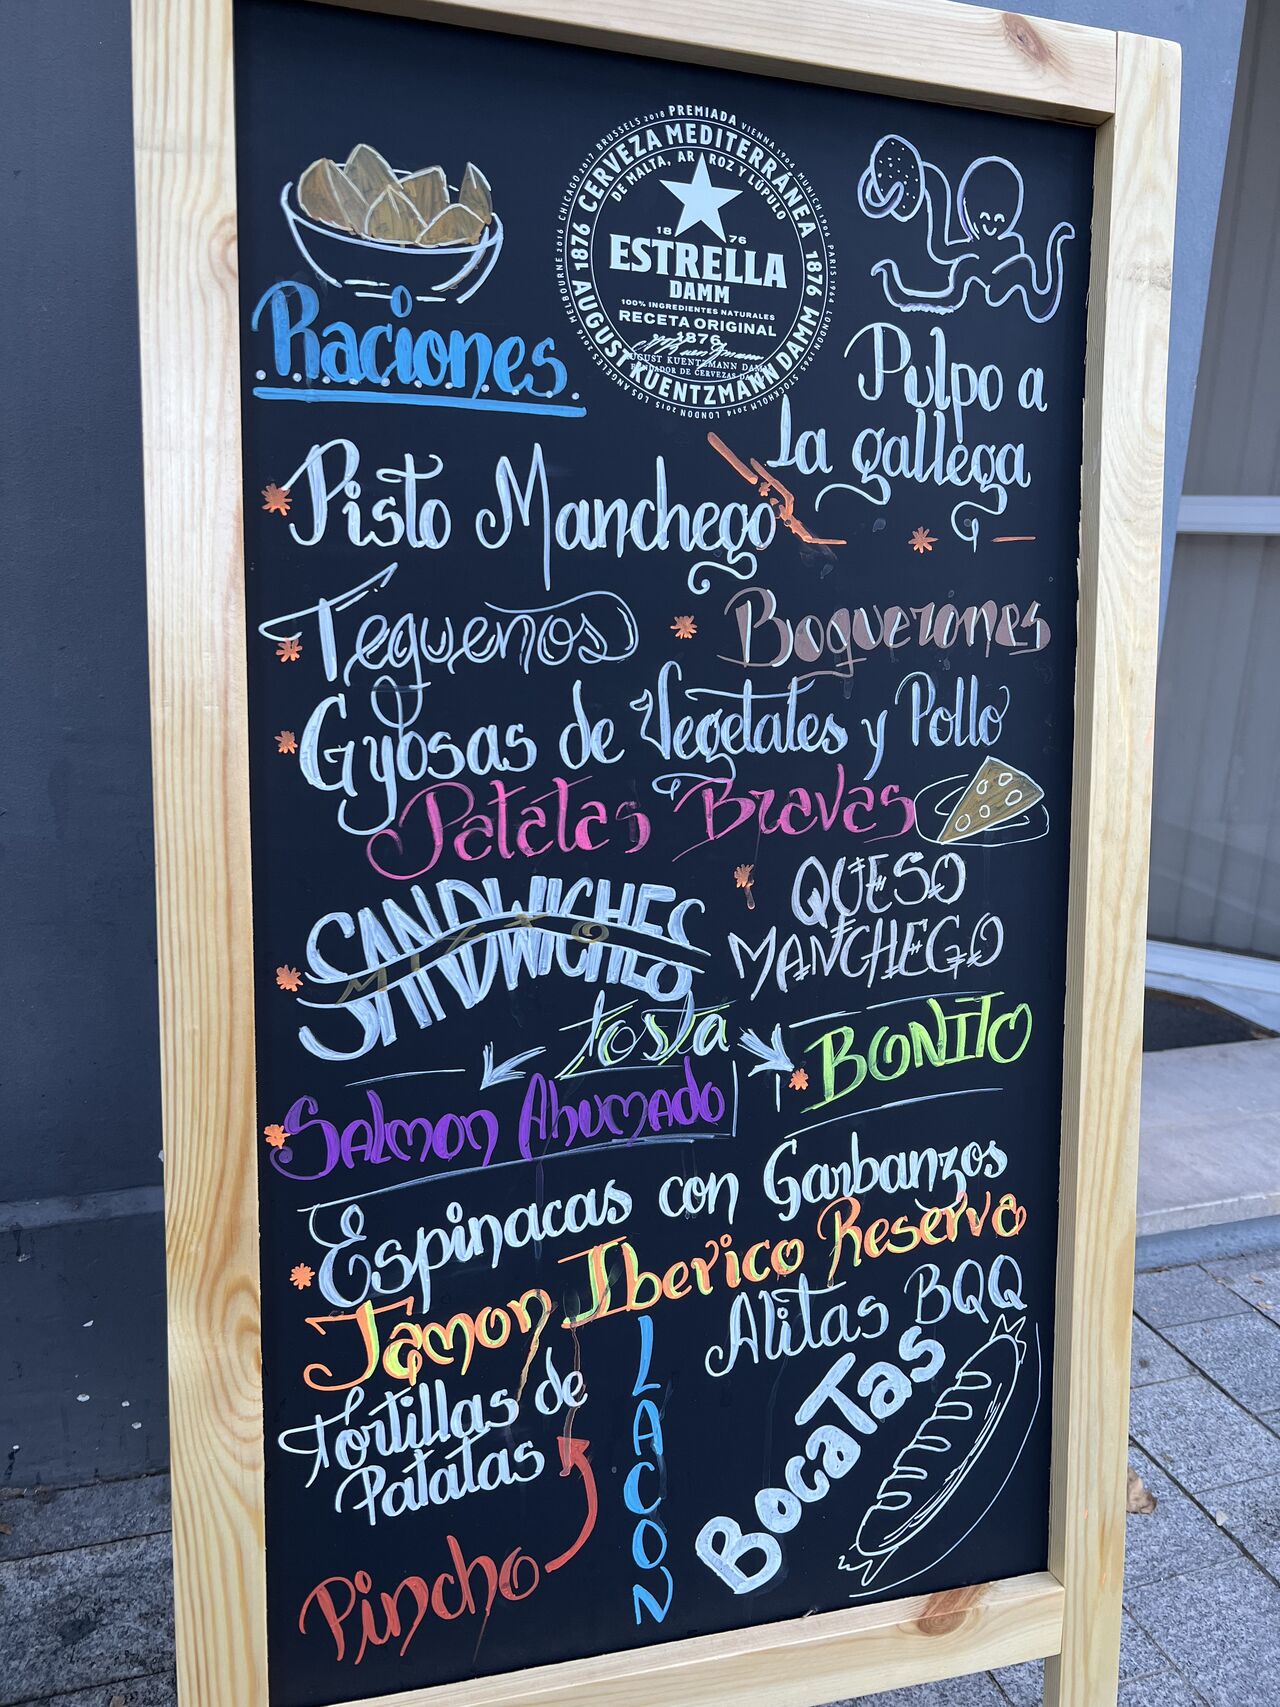 PREMIADA VIENNA 1904 MUNICH 1906 PARIS 1964 LONDON 1965 STOCKHOLM
LONDON 2014 LOS ANGELES 2016 MELBOURNE 2016 CHICAGO 2017 BRUSSELS 2018
1876 CERVEZA MEDITERRÁNEA 1876
DE MALTA, ARROZ Y LÚPULO
18 76
ESTRELLA
DAMM
100% INGREDIENTES NATURALES
RECETA ORIGINAL
1876
AUGUST KUENTZMANN DAMM
FUNDADOR DE CERVEZAS DAMM
AUGUST KUENTZMANN DAMM
Raciones
Pulpo a
la gallega
Pisto Manchego
Tequeños
Boquerones
Gyosas de Vegetales y Pollo
Patatas Bravas
SANDWICHES
MIXTO
QUESO
MANCHEGO
tosta
BONITO
Salmon Ahumado
Espinacas con Garbanzos
Jamon Iberico Reserva
Alitas BQQ
Tortillas de
Patatas
LACON
BocaTas
Pincho